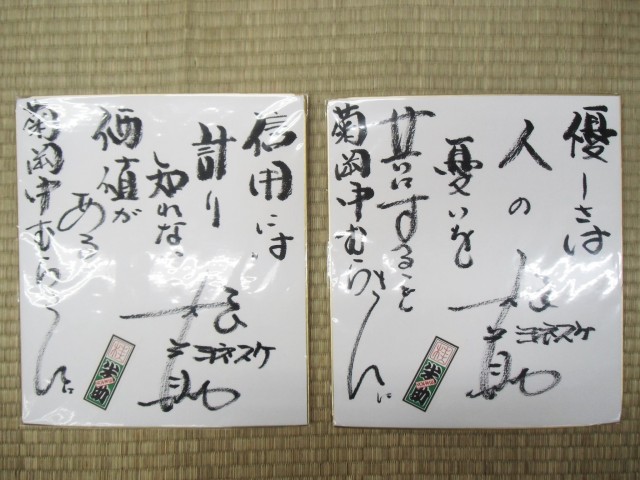 優しさは
人の
憂いを
共にすること
桂米助
ヨネスケ
菊岡中むらさんに
桂
米助
信用には
計り
知れない
価値が
ある
桂米助
ヨネスケ
菊岡中むらさんに
桂
米助